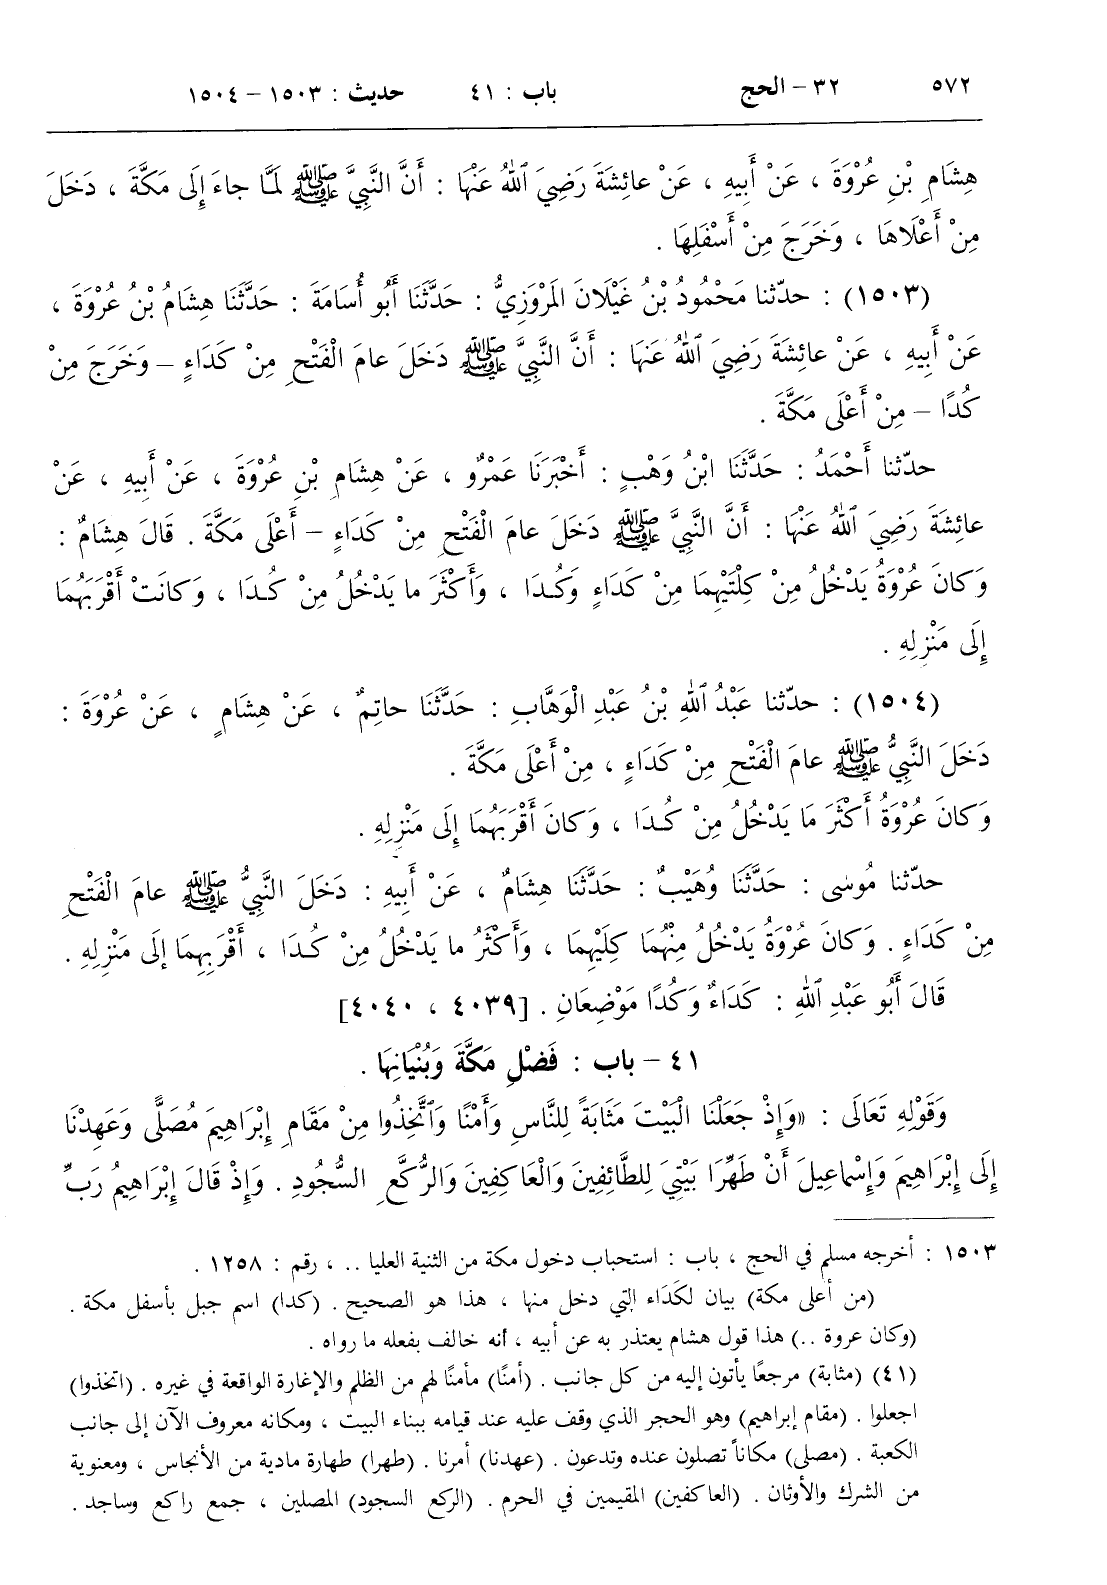 ٥٧٢ ٣٢ – الحج باب : ٤١ حديث : ١٥٠٣ – ١٥٠٤
هِشَامِ بْنِ عُرْوَةَ ، عَنْ أَبِيهِ ، عَنْ عائِشَةَ رَضِيَ ٱللهُ عَنْهَا : أَنَّ النَّبِيَّ ﷺ لَمَّا جاءَ إِلَى مَكَّةَ ، دَخَلَ
مِنْ أَعْلَاهَا ، وَخَرَجَ مِنْ أَسْفَلِهَا .
(١٥٠٣) : حدّثنا مَحْمُودُ بْنُ غَيْلَانَ المَرْوَزِيُّ : حَدَّثَنَا أَبُو أُسَامَةَ : حَدَّثَنَا هِشَامُ بْنُ عُرْوَةَ ،
عَنْ أَبِيهِ ، عَنْ عائِشَةَ رَضِيَ ٱللهُ عَنهَا : أَنَّ النَّبِيَّ ﷺ دَخَلَ عامَ الْفَتْحِ مِنْ كَدَاءٍ – وَخَرَجَ مِنْ
كُدًا – مِنْ أَعْلَى مَكَّةَ .
حدّثنا أَحْمَدُ : حَدَّثَنَا ابْنُ وَهْبٍ : أَخْبَرَنَا عَمْرٌو ، عَنْ هِشَامِ بْنِ عُرْوَةَ ، عَنْ أَبِيهِ ، عَنْ
عائِشَةَ رَضِيَ ٱللهُ عَنْهَا : أَنَّ النَّبِيَّ ﷺ دَخَلَ عامَ الْفَتْحِ مِنْ كَدَاءٍ – أَعْلَى مَكَّةَ . قَالَ هِشَامٌ :
وَكانَ عُرْوَةُ يَدْخُلُ مِنْ كِلْتَيْهِمَا مِنْ كَدَاءٍ وَكُدَا ، وَأَكْثَرَ ما يَدْخُلُ مِنْ كُدَا ، وَكانَتْ أَقْرَبَهُمَا
إِلَى مَنْزِلِهِ .
(١٥٠٤) : حدّثنا عَبْدُ ٱللهِ بْنُ عَبْدِ الْوَهَّابِ : حَدَّثَنَا حاتِمٌ ، عَنْ هِشَامٍ ، عَنْ عُرْوَةَ :
دَخَلَ النَّبِيُّ ﷺ عامَ الْفَتْحِ مِنْ كَدَاءٍ ، مِنْ أَعْلَى مَكَّةَ .
وَكانَ عُرْوَةُ أَكْثَرَ مَا يَدْخُلُ مِنْ كُدَا ، وَكانَ أَقْرَبَهُمَا إِلَى مَنْزِلِهِ .
حدّثنا مُوسٰى : حَدَّثَنَا وُهَيْبٌ : حَدَّثَنَا هِشَامٌ ، عَنْ أَبِيهِ : دَخَلَ النَّبِيُّ ﷺ عامَ الْفَتْحِ
مِنْ كَدَاءٍ . وَكانَ عُرْوَةُ يَدْخُلُ مِنْهُمَا كِلَيْهِمَا ، وَأَكْثَرُ ما يَدْخُلُ مِنْ كُدَا ، أَقْرَبِهِمَا إِلَى مَنْزِلِهِ .
قَالَ أَبُو عَبْدِ ٱللهِ : كَدَاءٌ وَكُدًا مَوْضِعَانِ . [٤٠٣٩ ، ٤٠٤٠]
٤١ – باب : فَضْلِ مَكَّةَ وَبُنْيَانِهَا .
وَقَوْلِهِ تَعَالَى : «وَإِذْ جَعَلْنَا الْبَيْتَ مَثَابَةً لِلنَّاسِ وَأَمْنًا وَٱتَّخِذُوا مِنْ مَقَامِ إِبْرَاهِيمَ مُصَلًّى وَعَهِدْنَا
إِلَى إِبْرَاهِيمَ وَإِسْمَاعِيلَ أَنْ طَهِّرَا بَيْتِيَ لِلطَّائِفِينَ وَالْعَاكِفِينَ وَالرُّكَّعِ السُّجُودِ . وَإِذْ قَالَ إِبْرَاهِيمُ رَبِّ
١٥٠٣ : أخرجه مسلم في الحج ، باب : استحباب دخول مكة من الثنية العليا .. ، رقم : ١٢٥٨ .
(من أعلى مكة) بيان لكَدَاء التي دخل منها ، هذا هو الصحيح . (كدا) اسم جبل بأسفل مكة .
(وكان عروة ..) هذا قول هشام يعتذر به عن أبيه ، أنه خالف بفعله ما رواه .
(٤١) (مثابة) مرجعًا يأتون إليه من كل جانب . (أمنًا) مأمنًا لهم من الظلم والإغارة الواقعة في غيره . (اتخذوا)
اجعلوا . (مقام إبراهيم) وهو الحجر الذي وقف عليه عند قيامه ببناء البيت ، ومكانه معروف الآن إلى جانب
الكعبة . (مصلى) مكاناً تصلون عنده وتدعون . (عهدنا) أمرنا . (طهرا) طهارة مادية من الأنجاس ، ومعنوية
من الشرك والأوثان . (العاكفين) المقيمين في الحرم . (الركع السجود) المصلين ، جمع راكع وساجد .